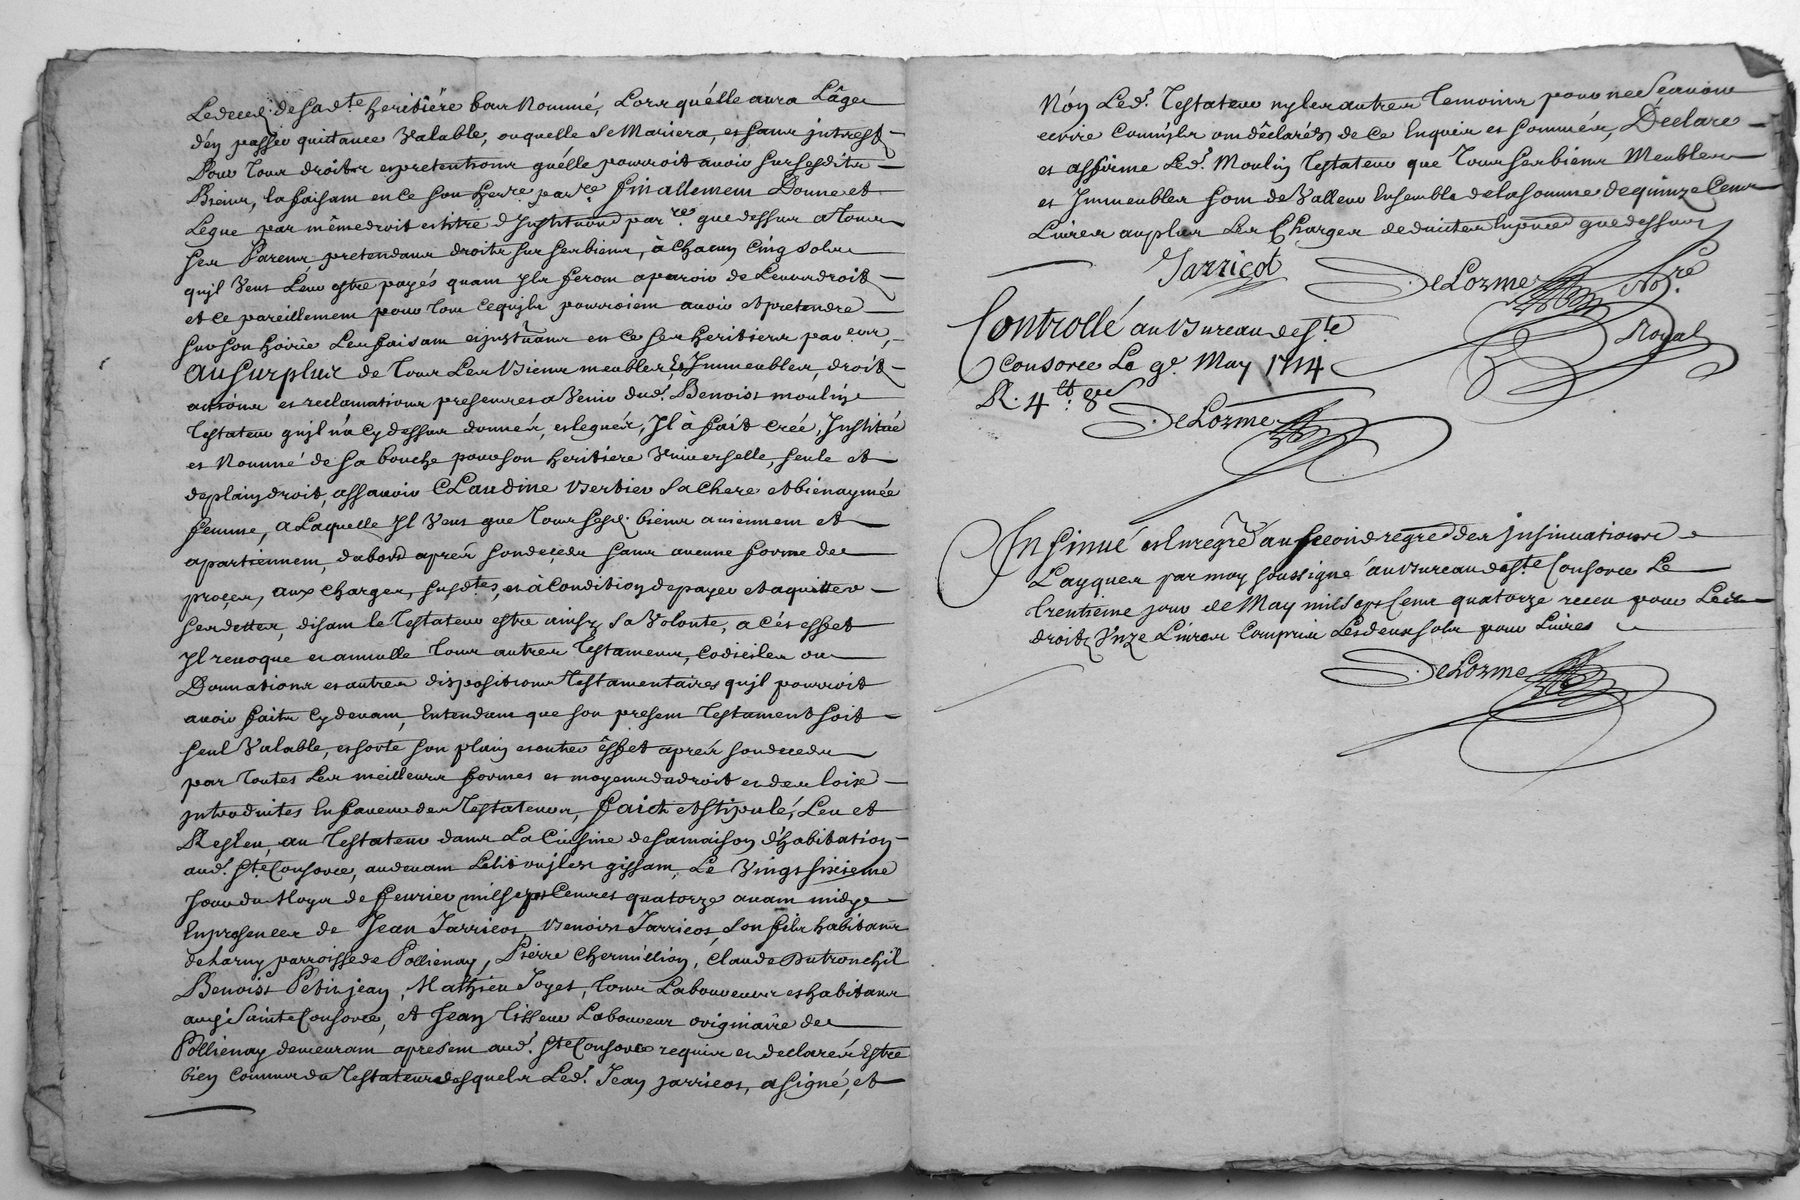 Le deced. de sa dte heritiere bas nommé, Lors qu'élle aura L'âge
d'en passer quittance Valable, ou quelle se Mariera, et sans jntrest
Pour tous droits et pretentions qu'élle pourroit avoir sur sesdits
Biens, la faisant en ce son herre parre finallement Donne et
Legue par même droit et titre d'Institution parre que dessus a tous
ses Parens pretendans droits sur ses biens, à chacun cinq sols
qu'jl Veut Leur estre payés quant Jls feront aparoir de Leurs droits
et ce pareillement pour tout ce qu'jls pourroient avoir et pretendre
sur son hoirie Les faisant et jnstituant en ce ses heritiers pareurs,
Au Surplus de tous Les Biens meubles & Jmmeubles, droits
actions et reclamations presentes a Venir dud. Benoist moulin
Testateur qu'jl n'a cy dessus donnés, et legués, Jl à fait créé, Jnstitué
et Nommé de sa bouche pour son heritiere Vniverselle, seule et
de plain droit, assavoir CLaudine Bertier sa chere et bienaymée
femme, a Laquelle Jl Veut que tous sesd. biens aviennent et
apartiennent, dabord aprés son deçeds sans aucune forme de
proçes, aux charges, susdtes, et à condition de payer et aquitter
ses dettes, disant le Testateur estre ainsy sa Volonté, a cés effet
Jl revoque et annulle tous autres Testamens, codiciles ou
Donnations et autres dispositions Testamentaires qu'jl pourroit
avoir faits cy devant, Entendant que son present Testament soit
seul Valable, et sorte son plain et entier êffet aprés son deceds
par toutes Les meilleurs formes et moyens de droit et des loix
jntroduites En faveur des Testateurs, faict et stipulé, Leu et
Resleu, au Testateur dans La Cuisine de sa maison d'habitation
aud. Ste Consorce, au devant Le lit ou jl est gissant, Le Vingt sixieme
Jour du Moys de fevrier mil sept Centes quatorze avant midy
En presences de Jean Jarricot, Benoist Jarricot, son fils habitans
de Larny parroisse de Pollienay, Pierre Chermillion, Claude Dutronchil
Benoist Petitjean, Mathieu Joyet, tous Laboureurs et habitans
aud. Sainte Consorce, et Jean Tisseur Laboureur originaire de
Pollienay demeurant a present aud. Ste Consorce requis et declarés Estre
bien Connus du Testateur desquels Led. Jean Jarricot, a signé, et
Nön Led. Testateur ny les autres temoins pour ne Scavoir
ecrire Comm'jls ont déclarés de ce Enquis et sommés, Déclare
et affirme Led. Moulin Testateur que tous ses biens Meubles
et Jmmeubles sont de Valleur Ensemble de la somme de quinze Cents
Livres au plus Les Charges deduites Enoncé que dessus
Jarricot
DeLorme Nore
Royal
Controllé au Bureau de Ste
Consorce Le 9e May 1714
R. 4lt 8s
DeLorme
Insinué et Enregré au second regre des jnsinuations
Layques par moy soussigné au Bureau de Ste Consorce Le
trentieme jour de May mil sept Cent quatorze receu pour Les
droits Vnze Livres Compris Les deux sols pour Livres
DeLorme